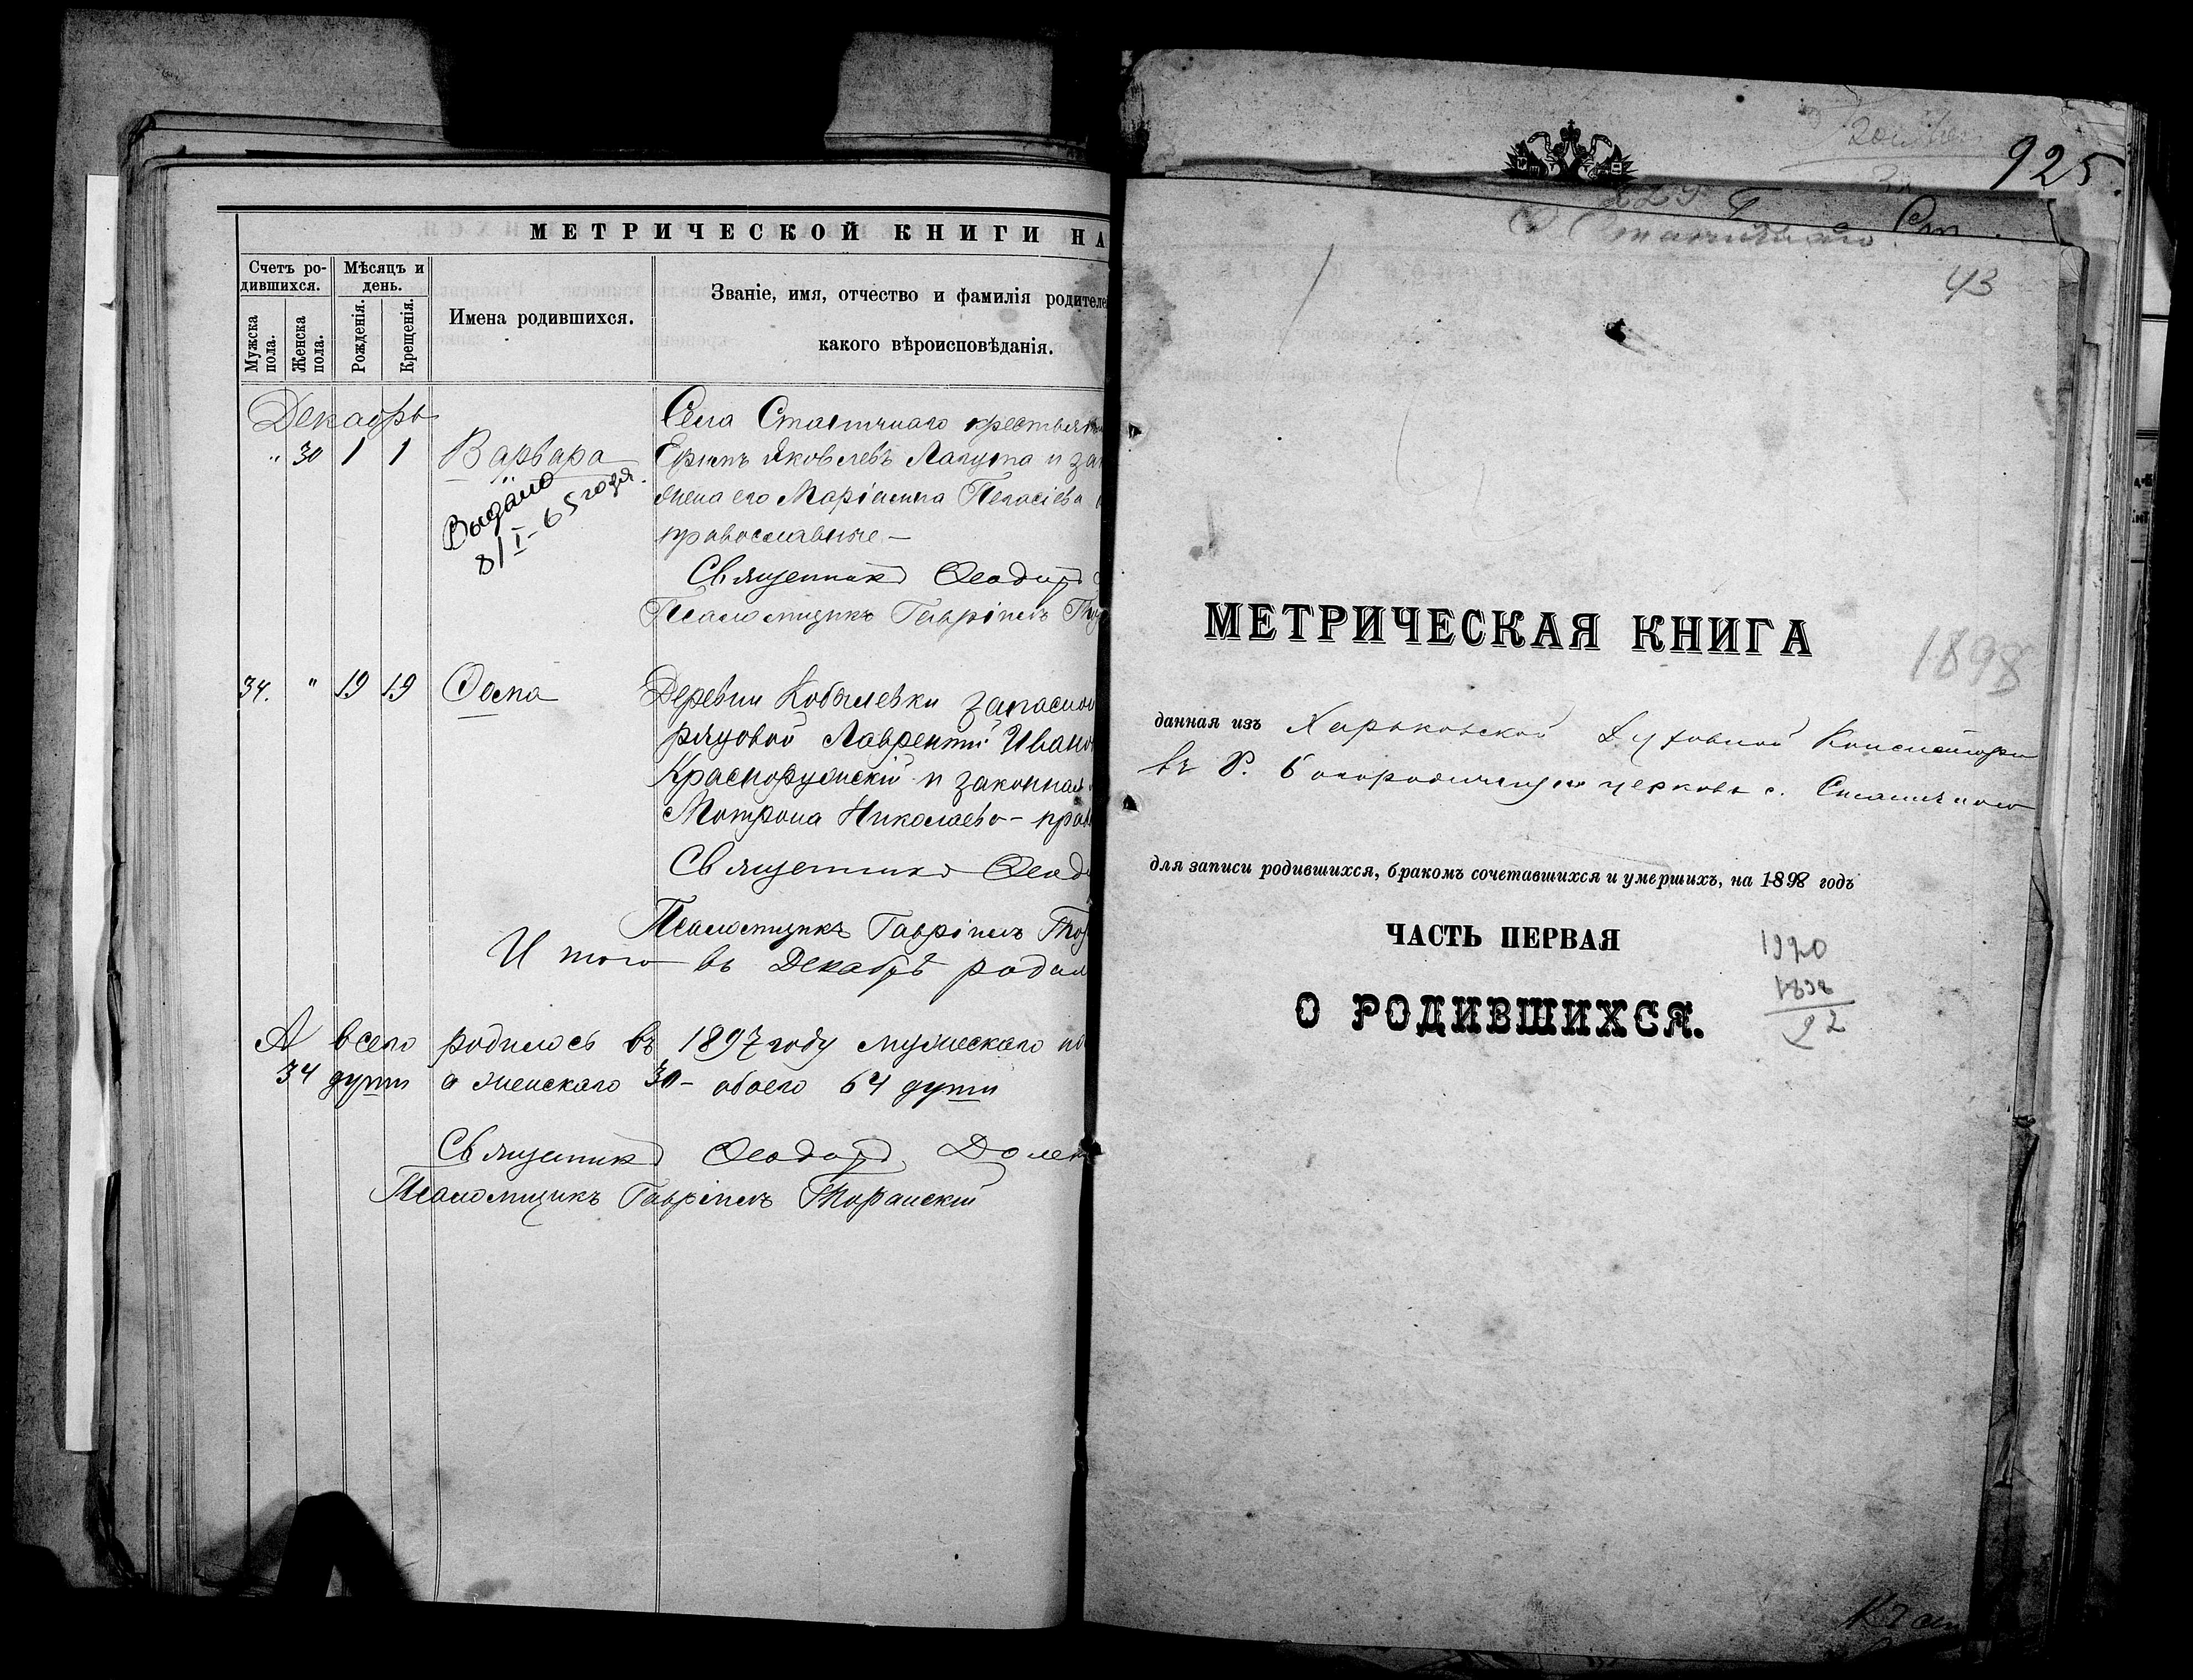 МЕТРИЧЕСКОЙ КНИГИ НА
Счетъ ро-
дившихся.
Мѣсяцъ и
день.
Мужска
пола.
Женска
пола.
Рожденія.
Крещенія.
Имена родившихся.
Званіе, имя, отчество и фамилія родителе
какого вѣроисповѣданія.
Декабрь
" 30 1 1 Варвара
Выдано
8/I-65 года.
Села Статичнаго крестьян
Яковлевъ и за
жена его
православные —
Священникъ Ѳеодоръ
Псаломщикъ Гавріилъ
34. " 19 19 Ѳома
Деревни Кобылевки запасной
рядовой Лаврентій Ивано
Красноружскій и законная
Мотрона Николаева - прав
Священникъ Ѳеод
Псаломщикъ Гавріилъ
Итого въ Декабрѣ родил
А всего родилось въ 1897 году мужескаго по
34 души а женскаго 30 - обоего 64 души
Священникъ Ѳеодоръ
Псаломщикъ Гавріилъ
925.
43
МЕТРИЧЕСКАЯ КНИГА
1898
данная изъ Харьковской Духовной Консисторіи
въ Р. Богородичную церковь с. Статичного
для записи родившихся, бракомъ сочетавшихся и умершихъ, на 1898 годъ
ЧАСТЬ ПЕРВАЯ
1920
1898
22
О РОДИВШИХСЯ.